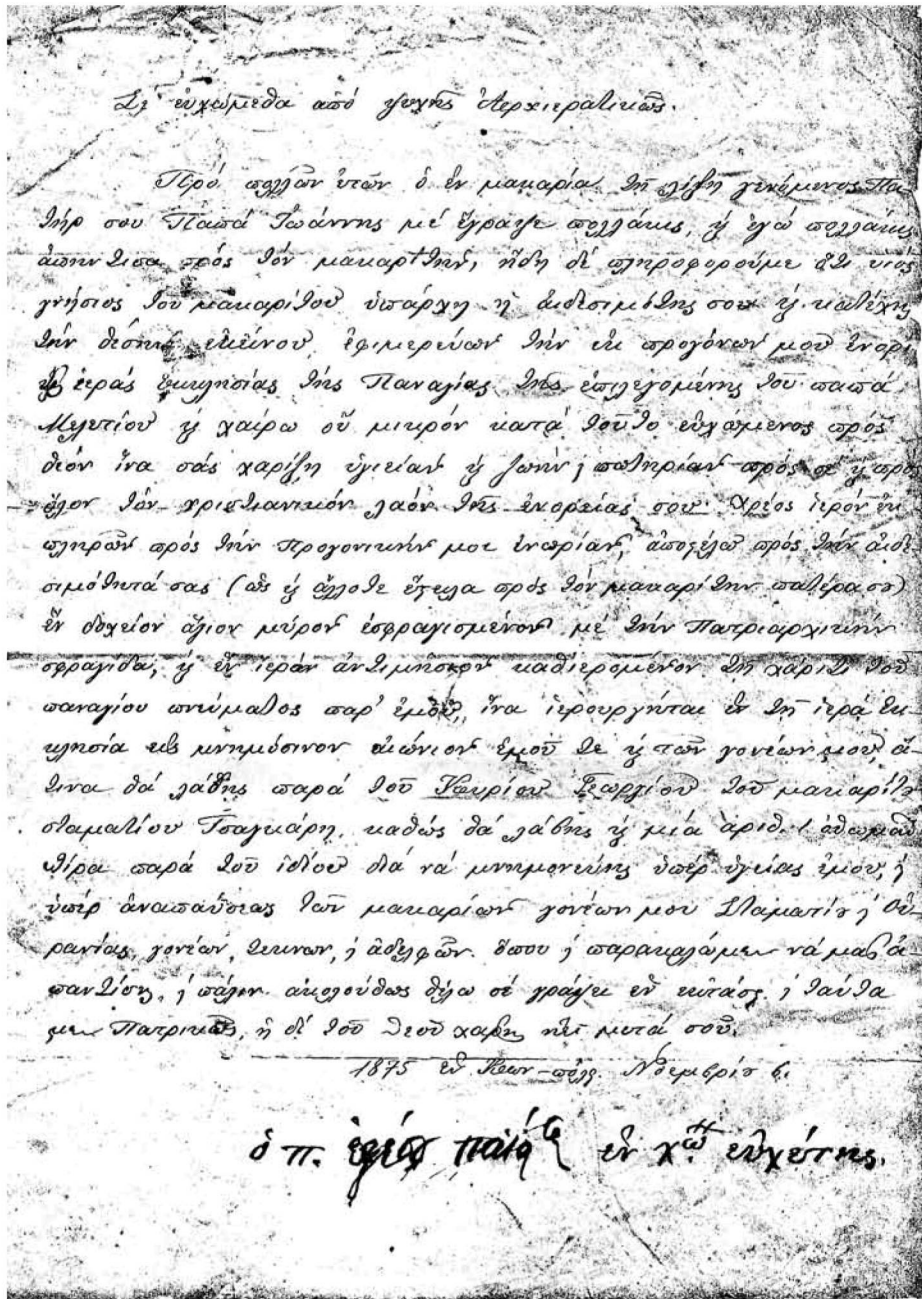 Σέ εὐχώμεθα από ψυχῆς Ἀρχιερατικῶς.
Πρό πολλῶν ἐτῶν ὁ ἐν μακαρία τῇ λίξη γενόμενος Πα-
τήρ σου Παπά Ἰωάννης μέ ἔγραψε πολλάκις, ϗ ἐγώ πολλάκις
ἀπήντισα πρός τόν μακαρίτην, ἤδη δέ πληροφορούμε ὅτι υιός
γνήσιος του μακαρίτου ὑπάρχη ἡ αιδεσιμότης σου ϗ κατέχη
τήν θέσην ἐκείνου ἐφιμερεύων τήν ἐκ προγόνων μου ἐνορι
ἱεράς ἐκκλησίας τῆς Παναγίας τῆς ἐπιλεγομένης τοῦ παπά
Μελετίου ϗ χαίρω οὐ μικρόν κατά τοῦτο εὐχώμενος πρός
θεόν ἵνα σάς χαρίζη ὑγιείαν ϗ ζωήν, σωτηρίαν πρός σέ ϗ πρό
ὅλον τόν χριστιανικόν λαόν τῆς ἐνορείας σου. Χρέος ἱερόν ἐκ
πληρῶν πρός τήν προγονικήν μου ἐνωρίαν, ἀποστέλω πρός τήν αἰδε
σιμότητά σας (ὡς ϗ ἄλλοτε ἔστειλα πρός τόν μακαρίτην πατέρα σου)
ἕν δοχεῖον ἅγιον μύρον ἐσφραγισμένον μέ τήν Πατριαρχικήν
σφραγίδα, ϗ ἕν ἱεράν ἀντιμήσιον καθιερομένον τῇ χάριτι τοῦ
παναγίου πνεύματος παρ' ἐμοῦ, ἵνα ἱερουργῆται ἐν τῇ ἱερά ἐκ
κλησία εἰς μνημόσινον αἰώνιον ἐμοῦ τε ϗ των γονέων μου, ἅ
τινα θά λάβης παρά τοῦ Κυρίου Γεωργίου τοῦ μακαρίτου
σταματίου Τσαγκάρη, καθώς θά λάβης ϗ μία ἀριθ. 1 ὀθωμαν
λίρα παρά τοῦ ἰδίου διά νά μνημονεύης ὑπέρ ὑγείας ἐμου, ϗ
ὑπέρ ἀναπαύσεως τῶν μακαρίων γονέων μου Σταματίου ϗ Οὐ
ρανίας, γονέων, τεκνων, ϗ ἀδελφῶν. ὅπου ϗ παρακαλῶμεν νά μας ἀ-
παντίση, ϗ πάλιν ἀκολούθως θέλω σέ γράψει ἐν ἐκτάσει ϗ ταῦτα
μεν Πατρικῶς, ἡ δέ τοῦ θεοῦ χάρις μετά σοῦ.
1875 ἐν Κων-πόλη Νοεμβρίου 6.
ὁ π. ἐν χ.ῷ εὐχέτης.